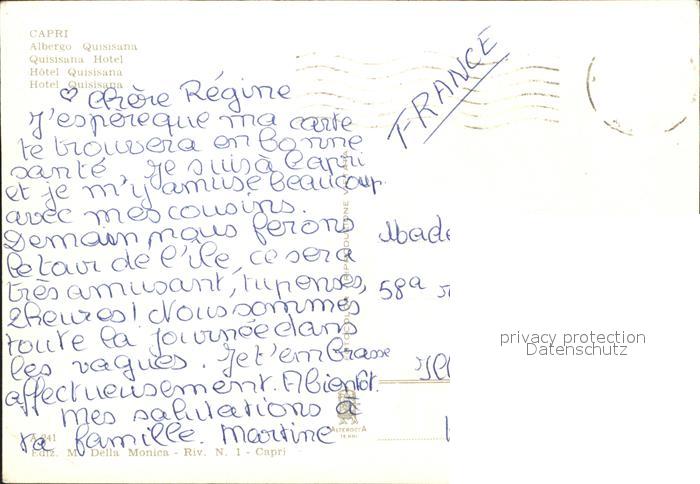 CAPRI
Albergo Quisisana
Quisisana Hotel
Hôtel Quisisana
Hotel Quisisana
FRANCE
Chère Régine
J'espère que ma carte
te trouvera en bonne
santé. Je suis à Capri
et je m'y amuse beaucoup
avec mes cousins.
Demain nous ferons
le tour de l'île, ce sera
très amusant, tu penses,
2 heures! Nous sommes
toute la journée dans
les vagues. Je t'embrasse
affectueusement. A bientôt.
Mes salutations à
ta famille. Martine
58a
privacy protection
Datenschutz
ALTEROCCA
TERNI
Ediz. M. Della Monica - Riv. N. 1 - Capri